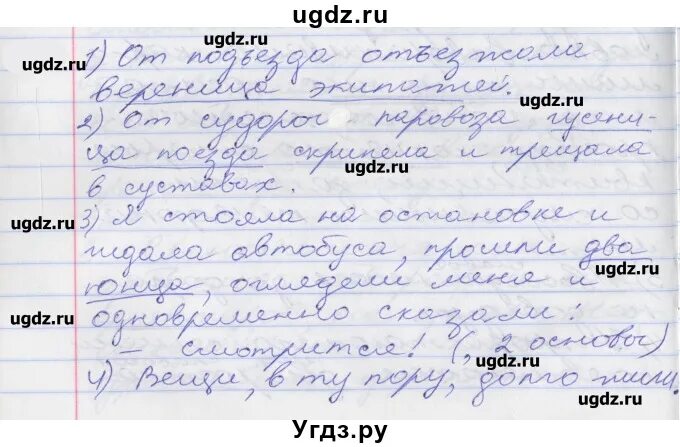 ugdz.ru
1) От подъезда отъезжала ugdz.ru
ugdz.ru вереница экипажей. ugdz.ru
2) От судорог паровоза гусени-
ца поезда скрипела и трещала
ugdz.ru
в суставах.
ugdz.ru 3) Я стояла на остановке и
ждала автобуса, прошли два
юнца, оглядели меня и ugdz.ru
ugdz.ru одновременно сказали:
– смотрится! (, 2 основы)
ugdz.ru
4) Вещи, в ту пору, долго жили.
ugdz.ru
Угдз.ру